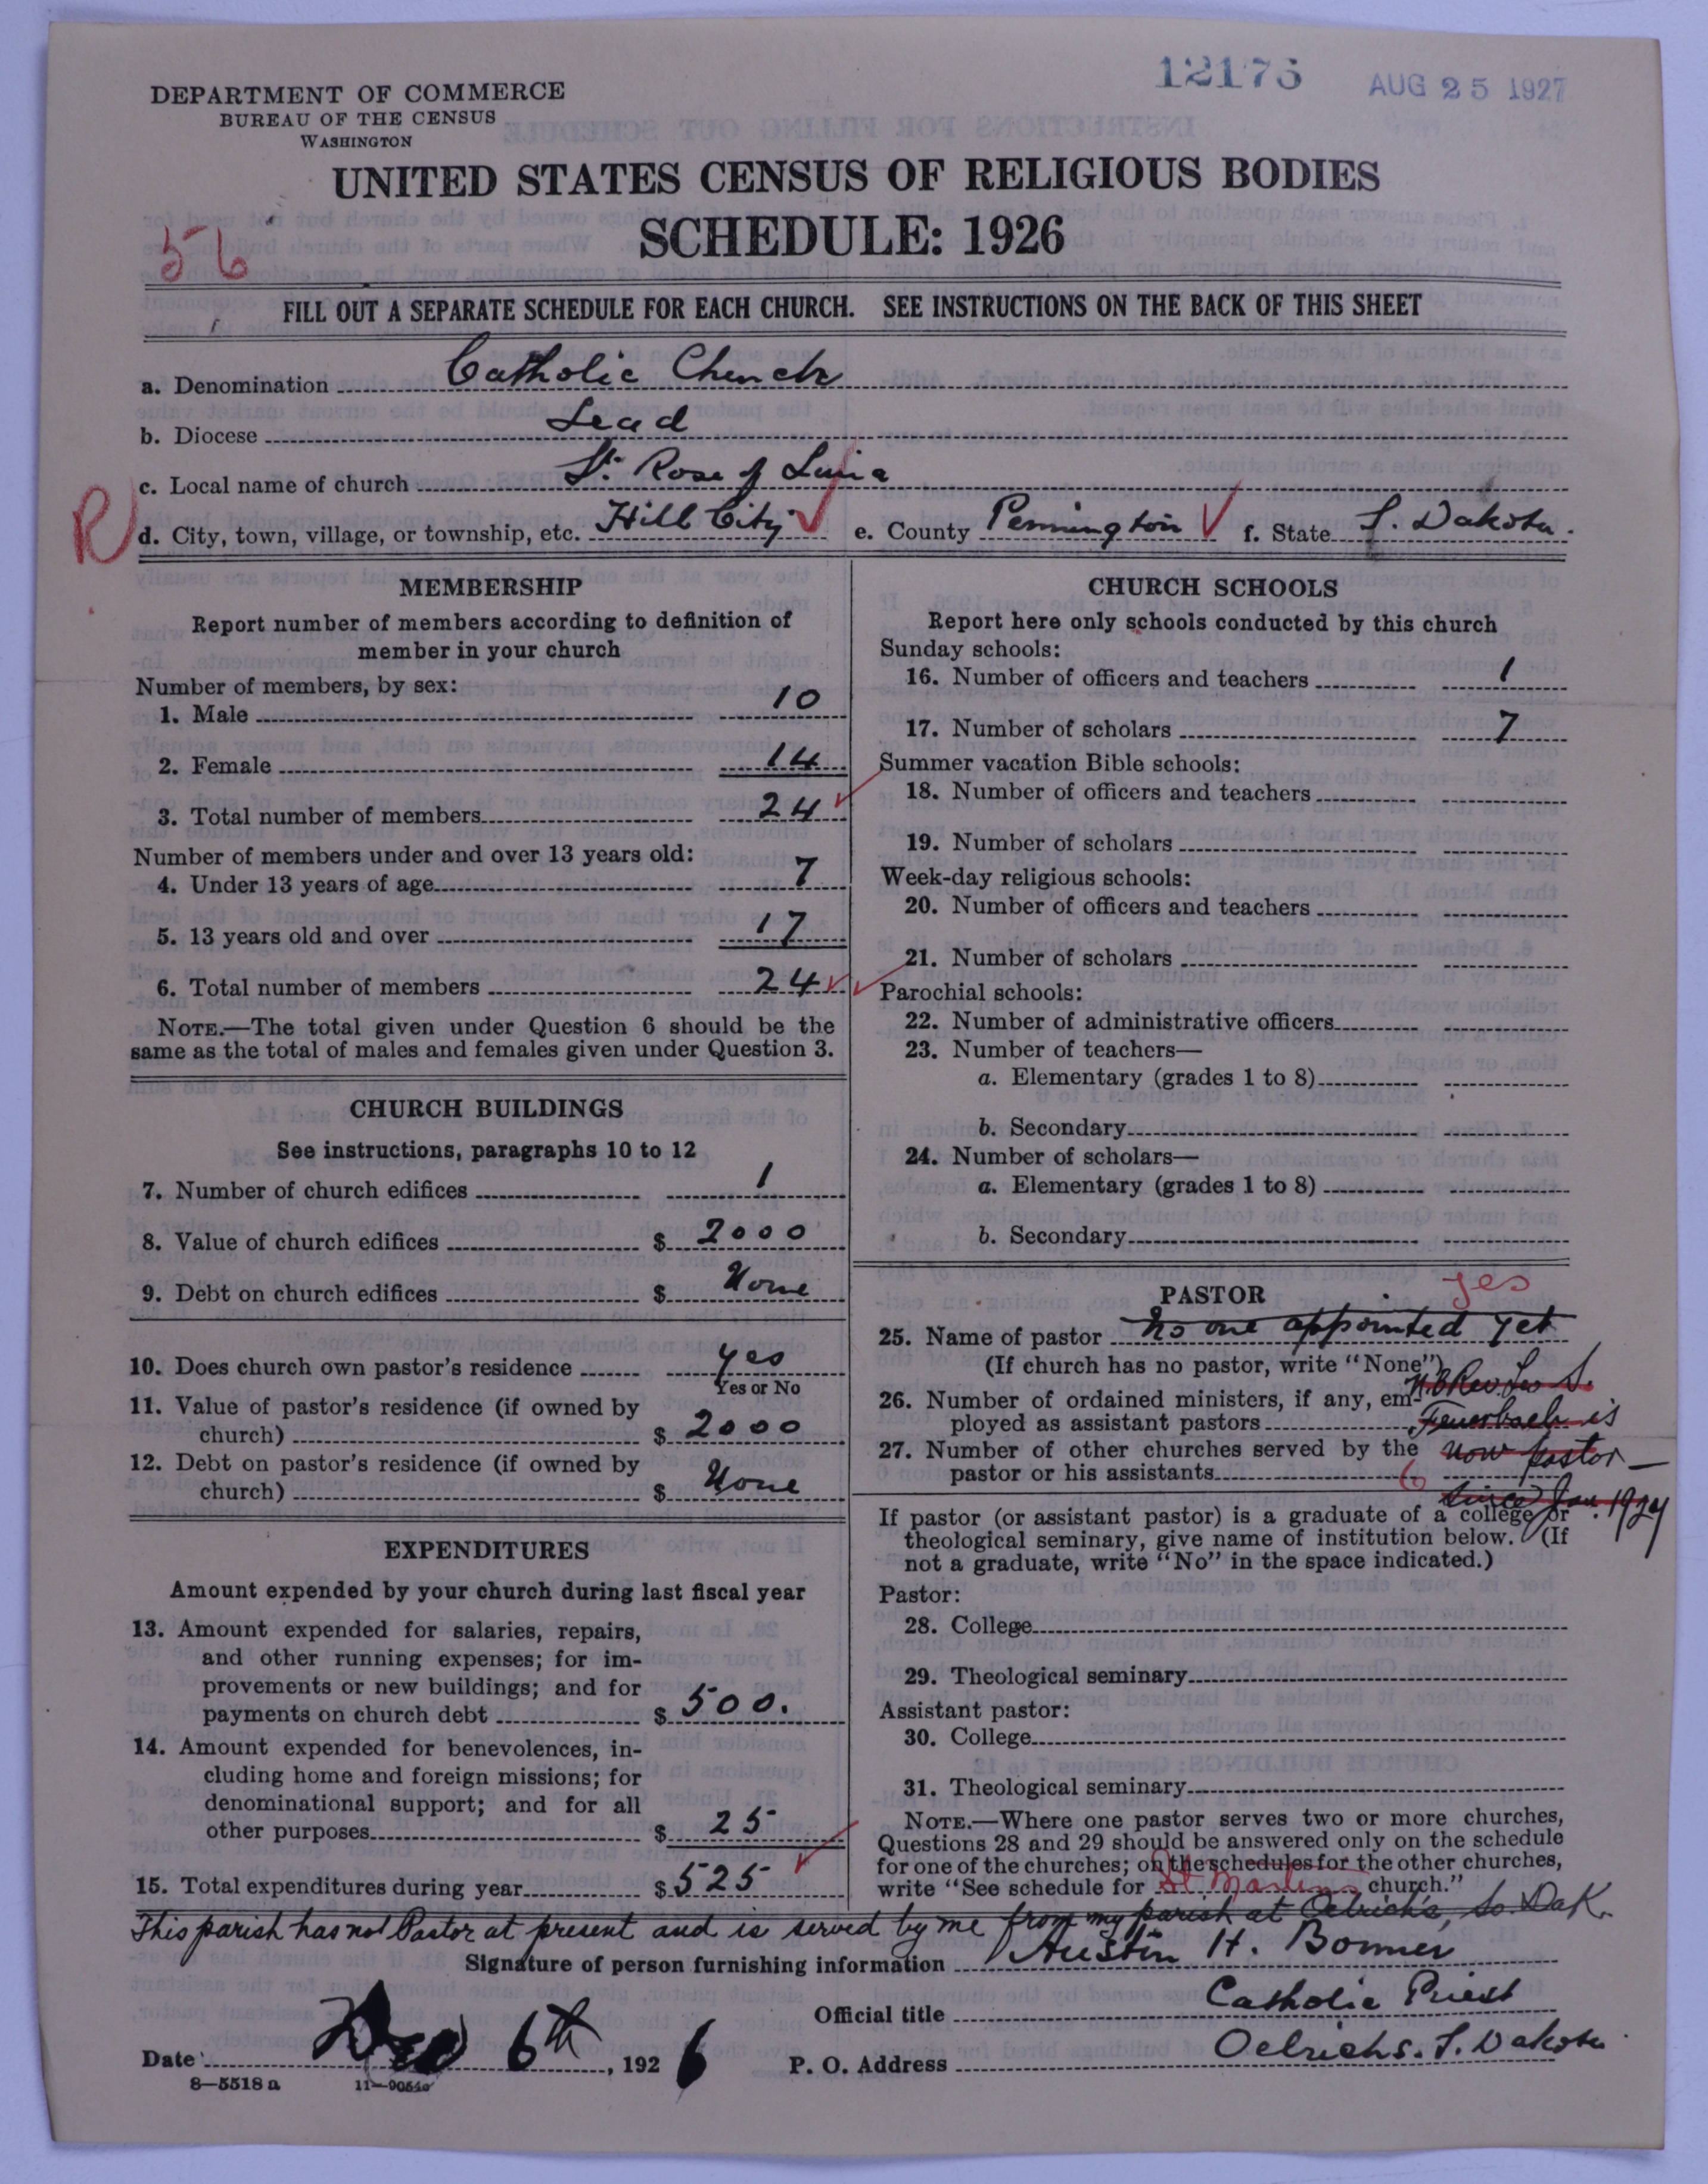 12175 AUG 25 1927
DEPARTMENT OF COMMERCE
BUREAU OF THE CENSUS
WASHINGTON
UNITED STATES CENSUS OF RELIGIOUS BODIES
SCHEDULE: 1926
56
FILL OUT A SEPARATE SCHEDULE FOR EACH CHURCH. SEE INSTRUCTIONS ON THE BACK OF THIS SHEET
a. Denomination Catholic Church
b. Diocese Lead
c. Local name of church St. Rose of Lima
R d. City, town, village, or township, etc. Hill City e. County Pennington f. State S. Dakota.
MEMBERSHIP
Report number of members according to definition of
member in your church
Number of members, by sex:
1. Male 10
2. Female 14
3. Total number of members 24
Number of members under and over 13 years old:
4. Under 13 years of age 7
5. 13 years old and over 17
6. Total number of members 24
NOTE.—The total given under Question 6 should be the
same as the total of males and females given under Question 3.
CHURCH BUILDINGS
See instructions, paragraphs 10 to 12
7. Number of church edifices 1
8. Value of church edifices $ 2000
9. Debt on church edifices $ None
10. Does church own pastor's residence yes
Yes or No
11. Value of pastor's residence (if owned by
church) $ 2000
12. Debt on pastor's residence (if owned by
church) $ None
EXPENDITURES
Amount expended by your church during last fiscal year
13. Amount expended for salaries, repairs,
and other running expenses; for im-
provements or new buildings; and for
payments on church debt $ 500.
14. Amount expended for benevolences, in-
cluding home and foreign missions; for
denominational support; and for all
other purposes $ 25
15. Total expenditures during year $ 525
CHURCH SCHOOLS
Report here only schools conducted by this church
Sunday schools:
16. Number of officers and teachers 1
17. Number of scholars 7
Summer vacation Bible schools:
18. Number of officers and teachers
19. Number of scholars
Week-day religious schools:
20. Number of officers and teachers
21. Number of scholars
Parochial schools:
22. Number of administrative officers
23. Number of teachers—
a. Elementary (grades 1 to 8)
b. Secondary
24. Number of scholars—
a. Elementary (grades 1 to 8)
b. Secondary
PASTOR yes
25. Name of pastor No one appointed yet
(If church has no pastor, write "None")
N.B Rev. Leo S.
26. Number of ordained ministers, if any, em-
ployed as assistant pastors Feuerbach is
27. Number of other churches served by the now pastor—
pastor or his assistants 6
since Jan. 1927
If pastor (or assistant pastor) is a graduate of a college or
theological seminary, give name of institution below. (If
not a graduate, write "No" in the space indicated.)
Pastor:
28. College
29. Theological seminary
Assistant pastor:
30. College
31. Theological seminary
NOTE.—Where one pastor serves two or more churches,
Questions 28 and 29 should be answered only on the schedule
for one of the churches; on the schedules for the other churches,
write "See schedule for St Martins church."
This parish has not Pastor at present and is served by me from my parish at Oelrichs, So. Dak.
Signature of person furnishing information Austin H. Bonner
Official title Catholic Priest
Date Dec 6th, 1926 P. O. Address Oelrichs. S. Dakota
8—5518 a